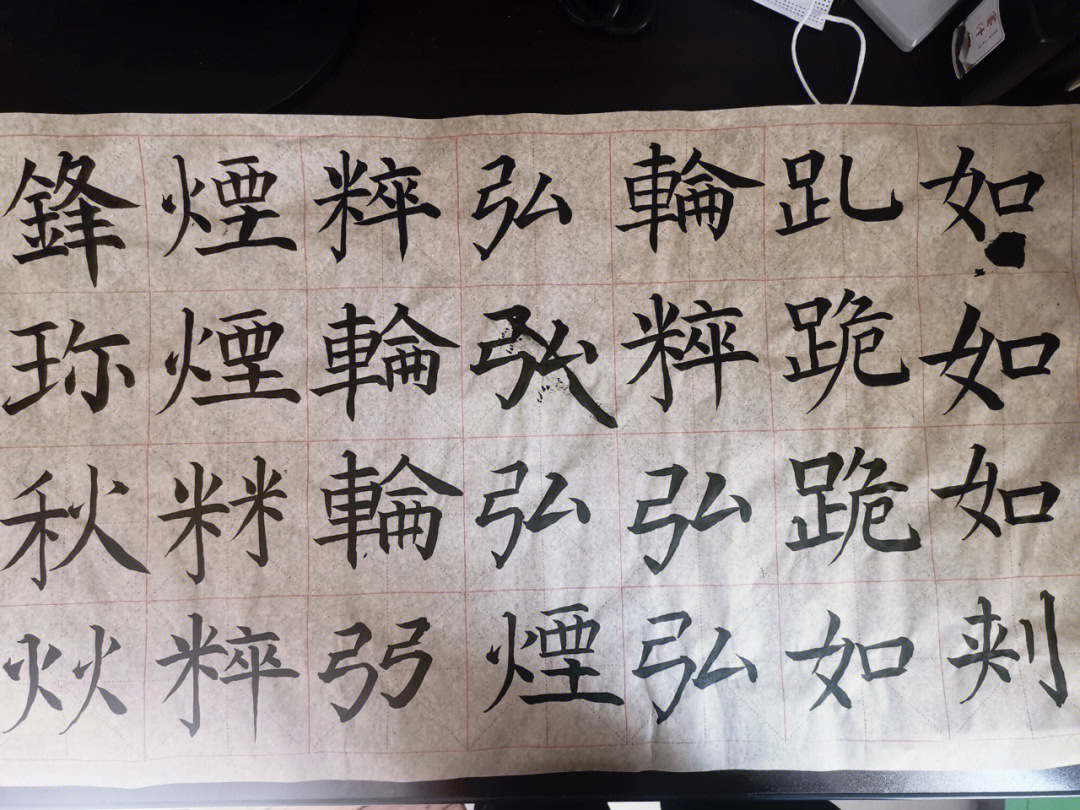 如如如
跪跪如
輪粹弘弘
弘弘弘煙
粹輪輪弜
煙煙粹
鋒珎秋炏